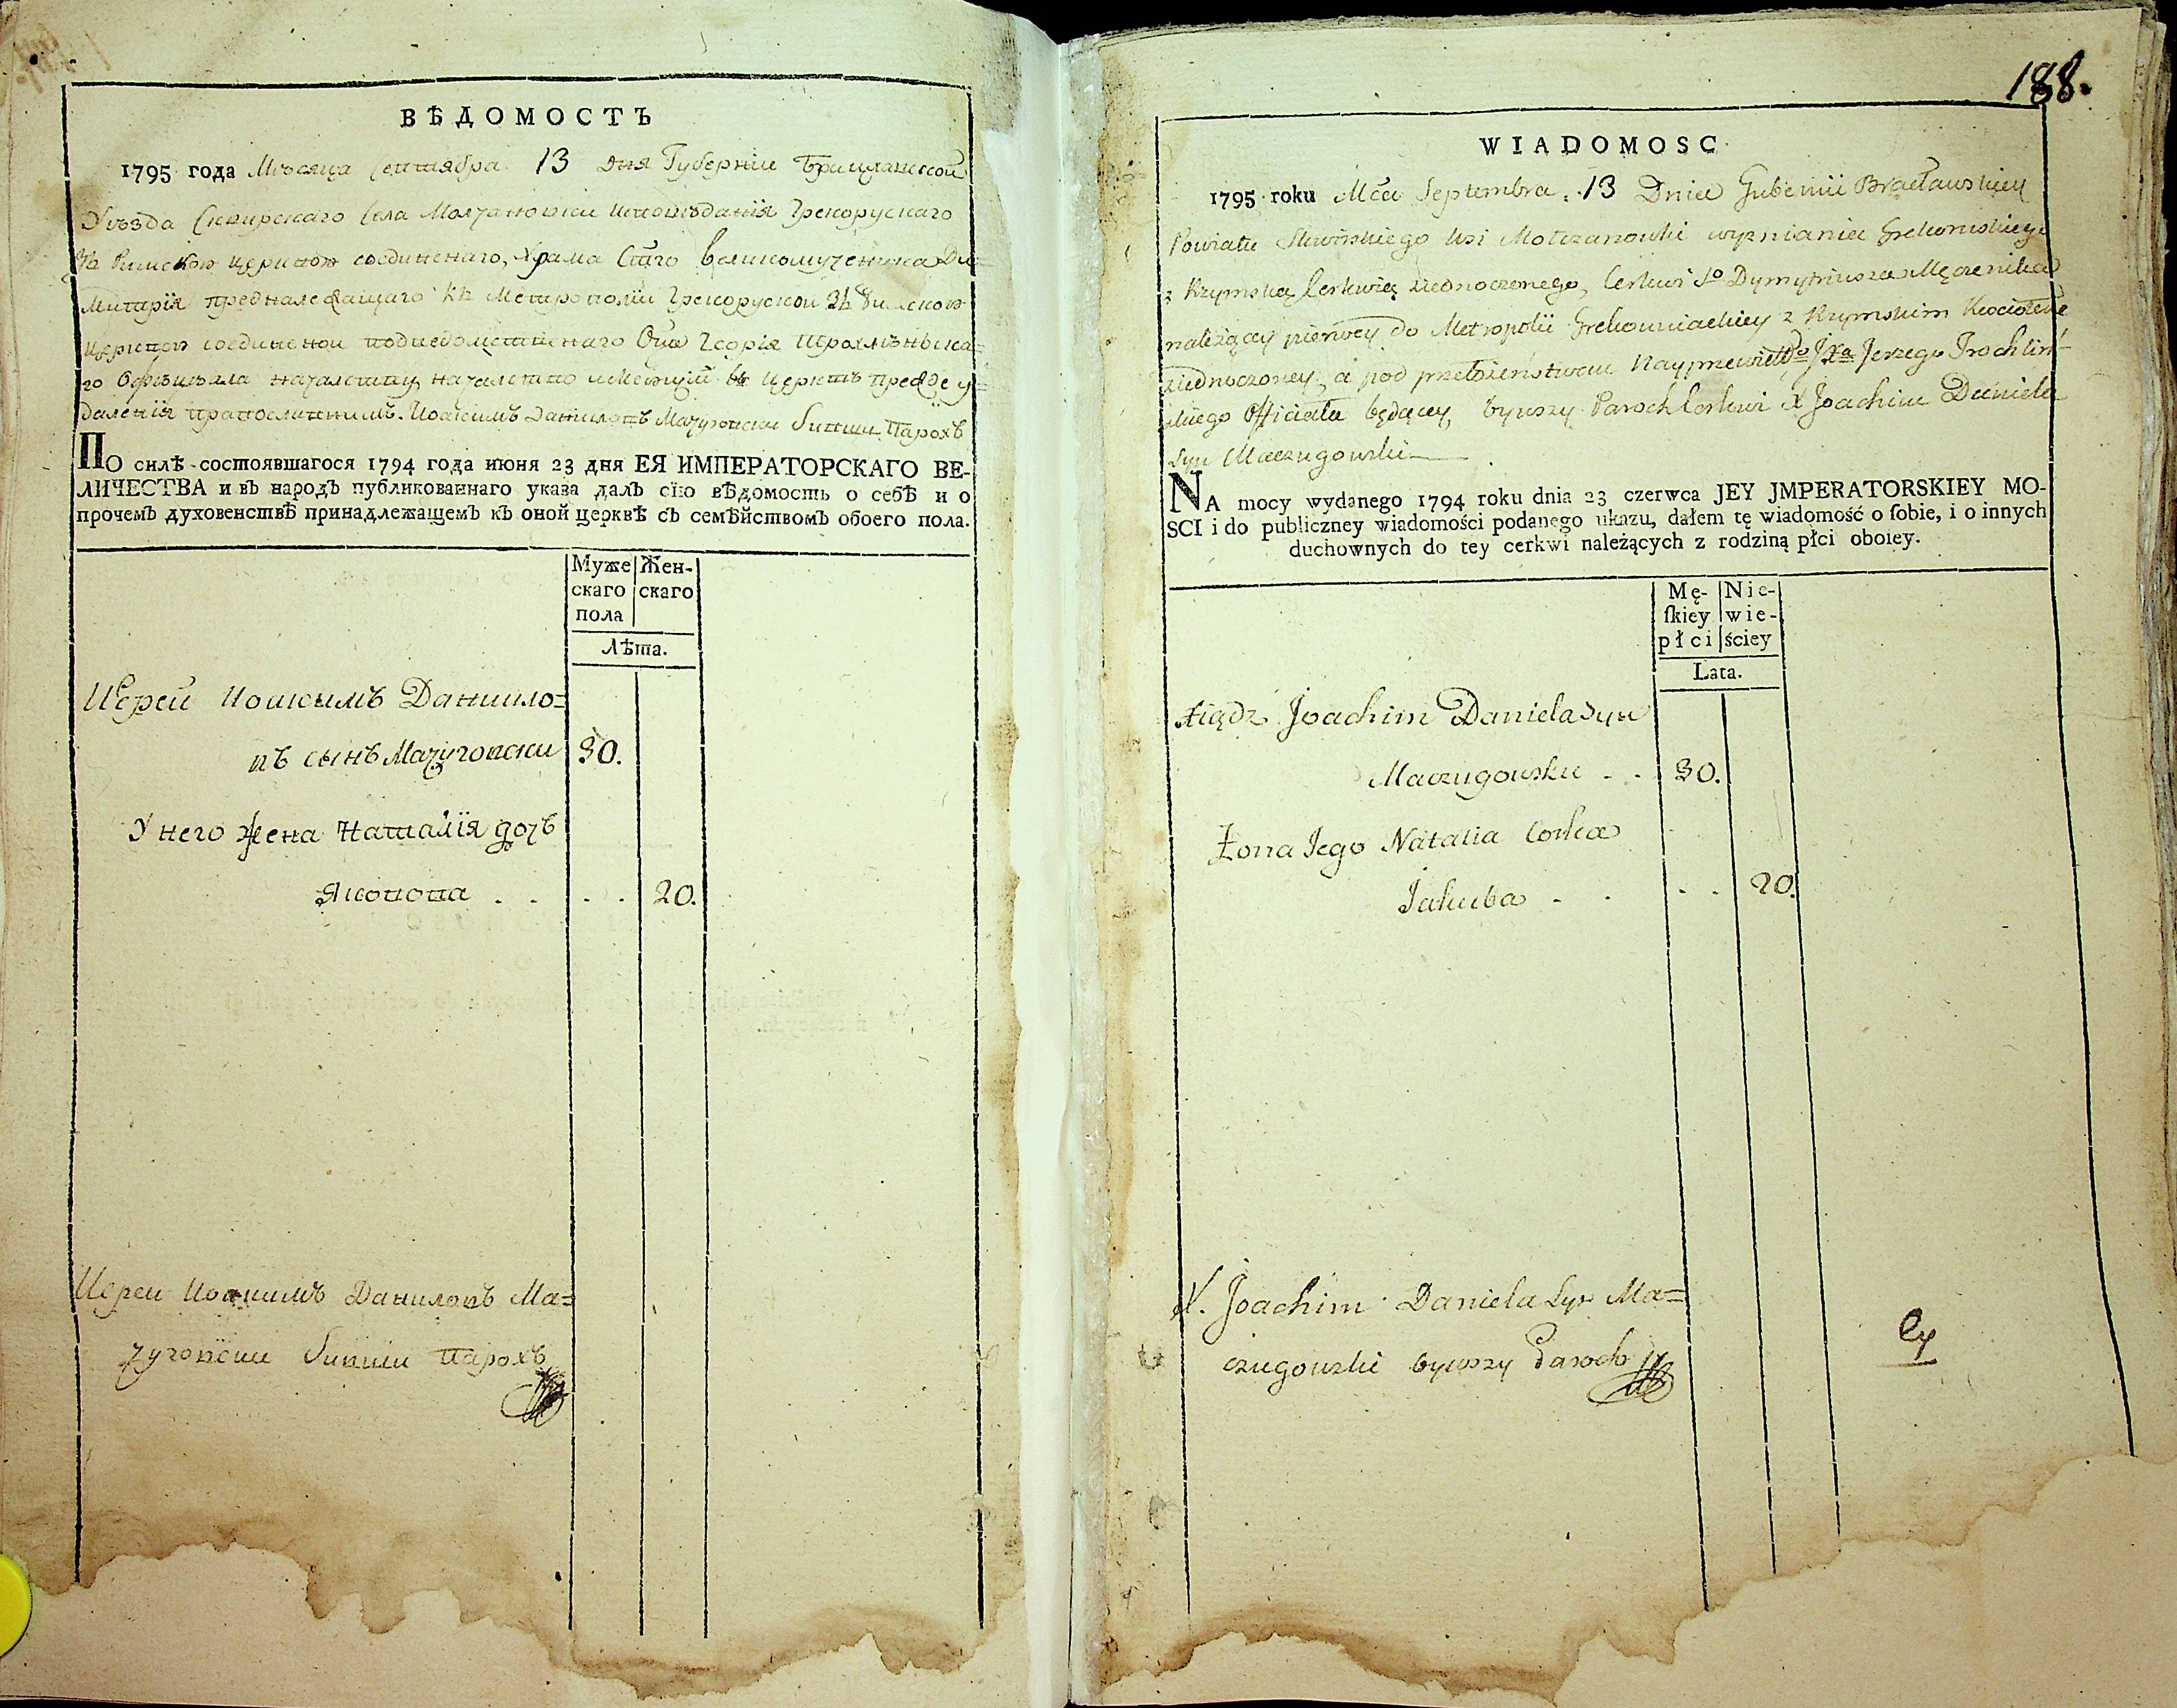 ВѢДОМОСТЬ
1795 года Мѣсяца Сентября 13 дня Губернїи Брацлавской
Уѣзда Сквирскаго Села Молчановки исповѣданїя Грекорускаго
Зъ Римскою церквою соединенаго, Храма Стаго Великомученика Ди=
митрїя предналежащаго къ Метрополїи Грекоруской Зъ Римскою
церквою соединеной подведомственаго Оца Георїя
го Офѣцїяла началству, началство имеющїй въ церквѣ прежде у=
даленїя Иоакимъ Даниловъ Мачуговски бивши Парохъ
ПО силѣ состоявшагося 1794 года июня 23 дня ЕЯ ИМПЕРАТОРСКАГО ВЕ-
ЛИЧЕСТВА и въ народъ публикованнаго указа далъ сїю вѣдомость о себѣ и о
прочемъ духовенствѣ принадлежащемъ къ оной церквѣ съ семѣйствомъ обоего пола.
Муже Жен-
скаго скаго
пола
Лѣта.
Иерей Иоакымъ Данило=
въ сынъ Мачуговски 30.
У него Жена Наталїя дочъ
Якопова . . . . 20.
Иереи Иоакимъ Даниловъ Ма=
чуговски бивши Парохъ
188.
WIADOMOSC
1795 roku Mca Septembra 13 Dnia Gubernii Bracławskiey
Powiatu Skwirskiego Wsi Mołczanowki wyznania Grekoruskiego
z Rzymską Cerkwią ziednoczonego, Cerkwi So Dymytriusza Męczenika
należącey pierwey do Metropolii Grekouniackiey z Rzymskim Kościołem
ziednoczoney, a pod przełożeństwem Jxa Jerzego
skiego Officiała będącey, bywszy Paroch Cerkwi X Joachim Daniela
Syn Maczugowski
NA mocy wydanego 1794 roku dnia 23 czerwca JEY JMPERATORSKIEY MO-
SCI i do publiczney wiadomości podanego ukazu, dałem tę wiadomość o ſobie, i o innych
duchownych do tey cerkwi należących z rodziną płci oboiey.
Mę- Nie-
ſkiey wie-
płci ściey
Lata.
Xiądz Joachim Daniela Syn
Maczugowski . . 30.
Żona Jego Natalia Corka
Jakuba . . . . 20.
X. Joachim Daniela Syn Ma=
czugowski bywszy Paroch